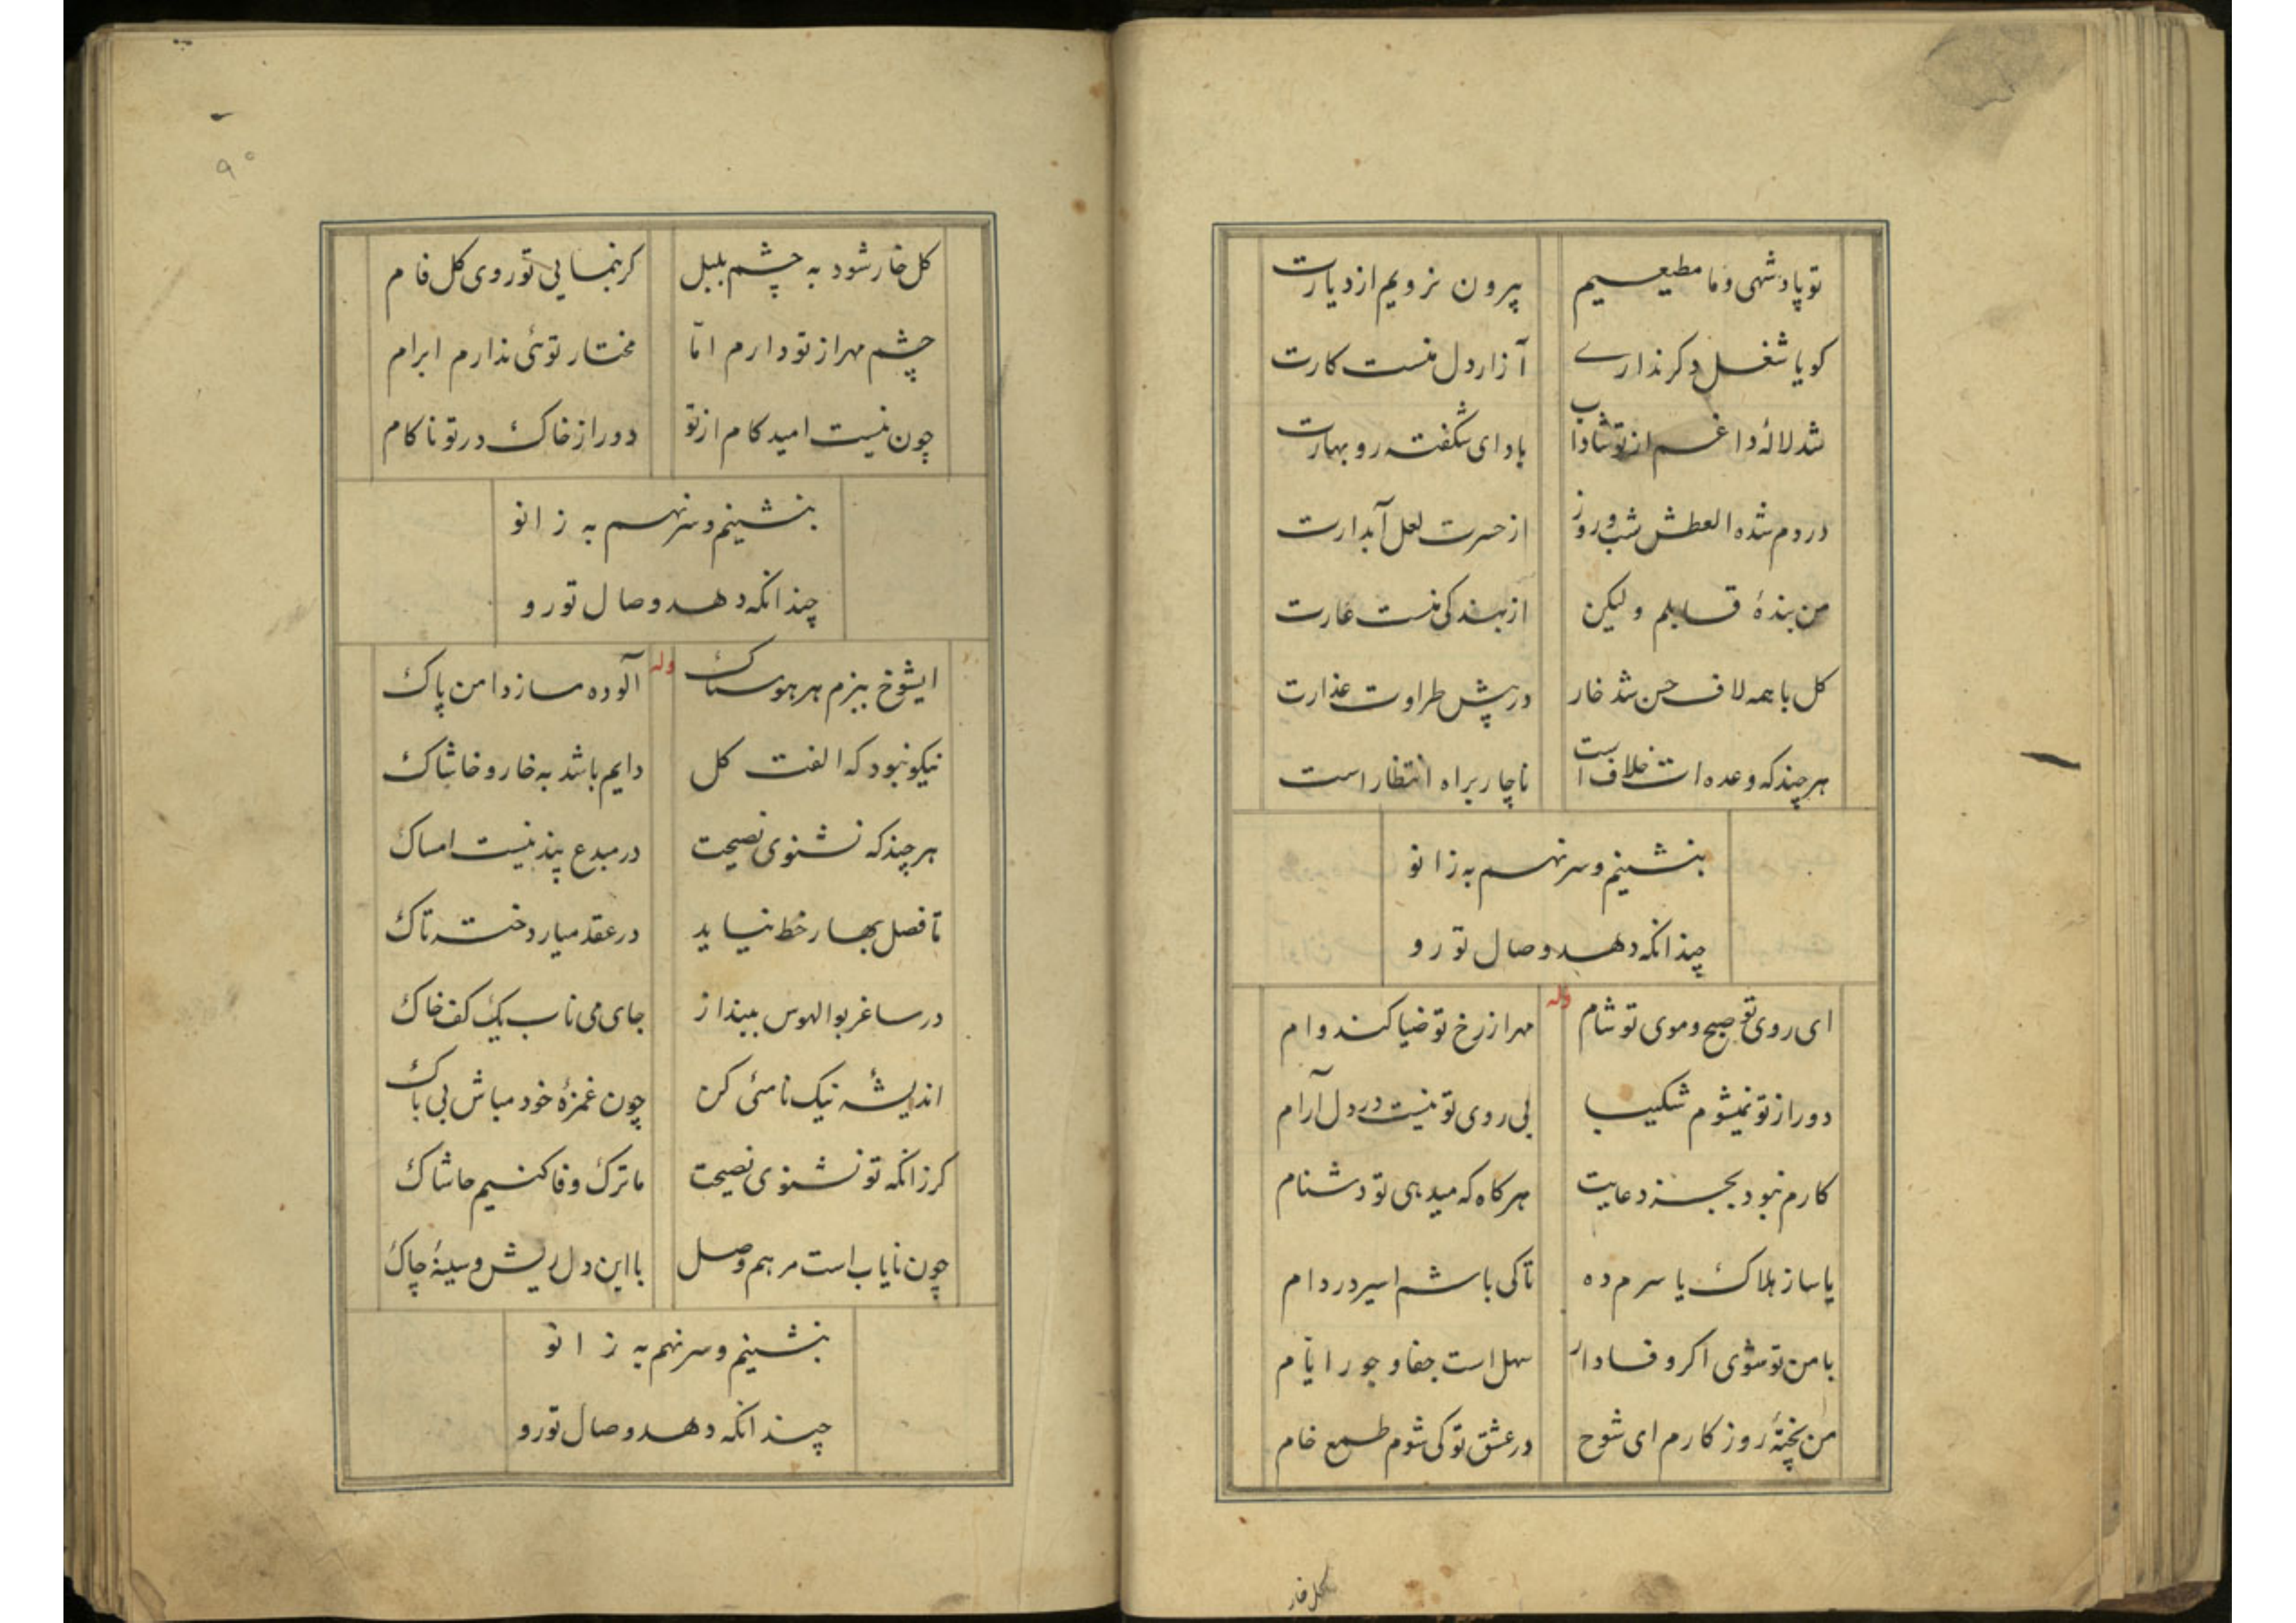 تو پادشهی و ما مطیعیم بیرون نرویم از دیارت
کویا شغل دکر نداری آزار دل منست کارت
شد لالهٔ داغم از تو شاداب باد ای شکفته رو بهارت
دردم شده العطش شب و روز از حسرت لعل آبدارت
من بندهٔ قابلم ولیکن از بندکی منست عارت
کل با همه لاف حسن شد خار در پیش طراوت عذارت
هر چند که وعده ات خلاف است ناچار براه انتظار است
بنشینم و سر نهم به زانو
چندانکه دهد وصال تو رو
وله
ای روی تو صبح و موی تو شام مهر از رخ تو ضیا کند وام
دور از تو نمیشوم شکیب بی روی تو نیست در دل آرام
کارم نبود بجز دعایت هر کاه که میدهی تو دشنام
یا ساز هلاک یا سرم ده تا کی باشم اسیر در دام
با من تو شوی اکر وفادار سهل است جفا و جور ایام
من پختهٔ روزکارم ای شوخ در عشق تو کی شوم طمع خام
کل خار
۹۰
کل خار شود به چشم بلبل کر بنمایی تو روی کل فام
چشم مهر از تو دارم امّا مختار توئی ندارم ابرام
چون نیست امید کام از تو دور از خاک در تو ناکام
بنشینم و سر نهم به زانو
چندانکه دهد وصال تو رو
وله
ایشوخ ببزم هر هوسناک آلوده مساز دامن پاک
نیکو نبود که الفت کل دایم باشد به خار و خاشاک
هر چند که نشنوی نصیحت در مبدع پند نیست امساک
تا فصل بهار خط نیاید در عقد میار دختر تاک
در ساغر بوالهوس بینداز جای می ناب یک کف خاک
اندیشهٔ نیک نامئی کن چون غمزهٔ خود مباش بی باک
کر زانکه تو نشنوی نصیحت ما ترک وفا کنیم حاشاک
چون نایاب است مرهم وصل با این دل ریش و سینهٔ چاک
بنشینم و سر نهم به زانو
چندانکه دهد وصال تو رو